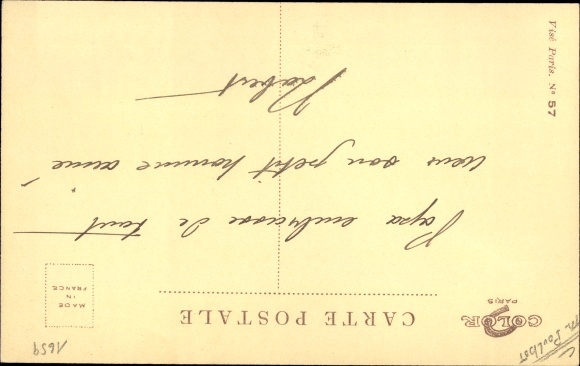 Poulbot
1659
COLOR
PARIS
CARTE POSTALE
MADE
IN
FRANCE
Papa embrasse de tout
cœur son petit homme aimé
Robert
Visé Paris. N° 57